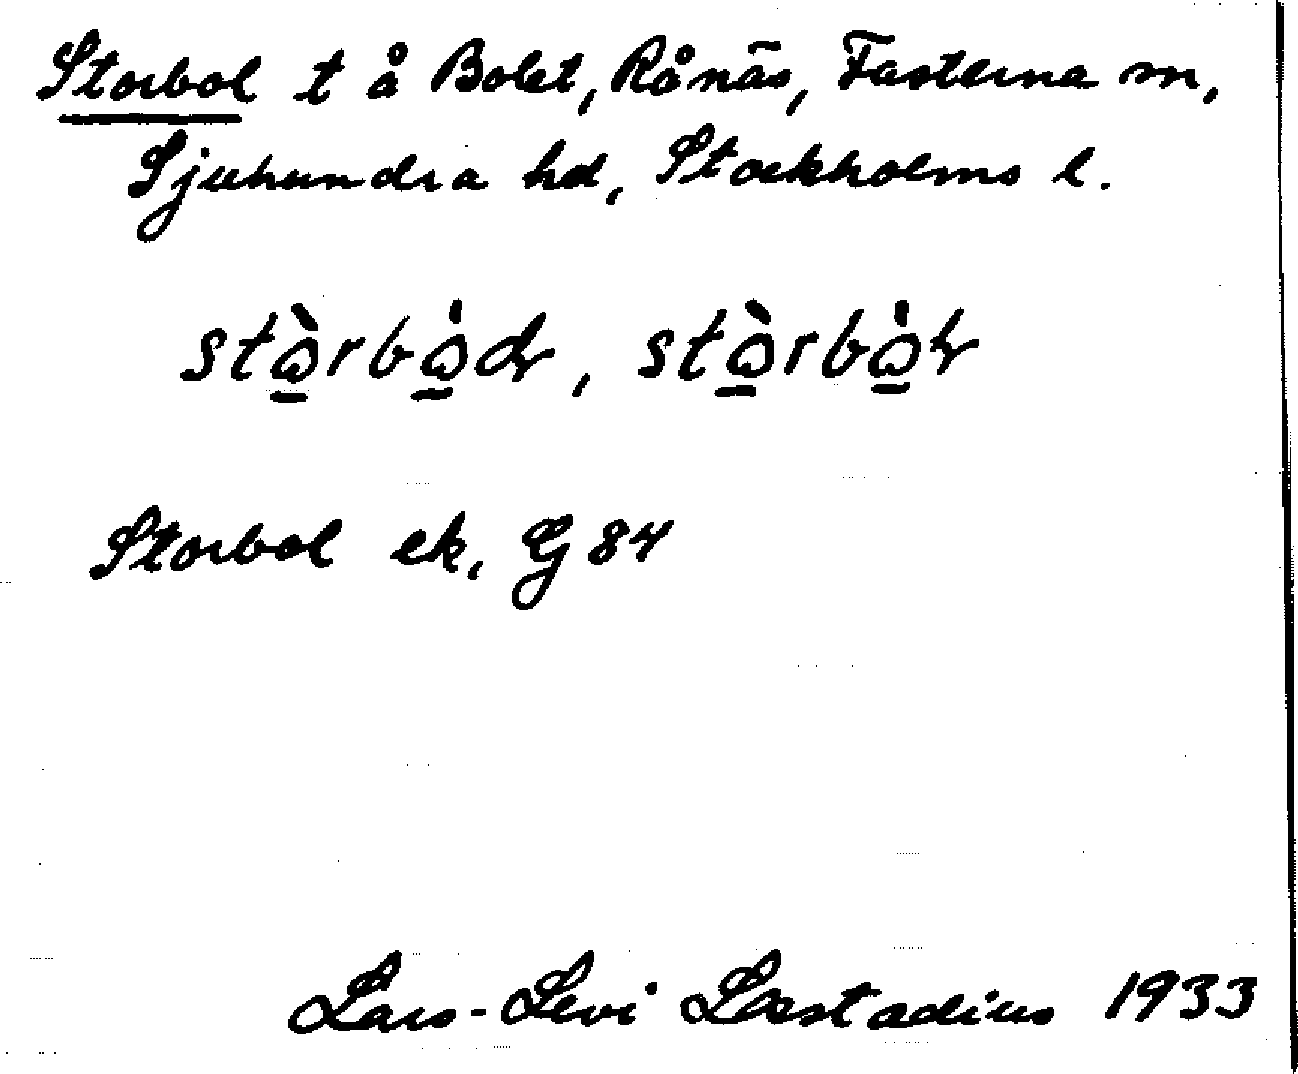 Storbol t å Bolet, Rånäs, Fasterna sn,
Sjuhundra hd, Stockholms l.
Storbol ek, G 84
Lars-Levi Læstadius 1933